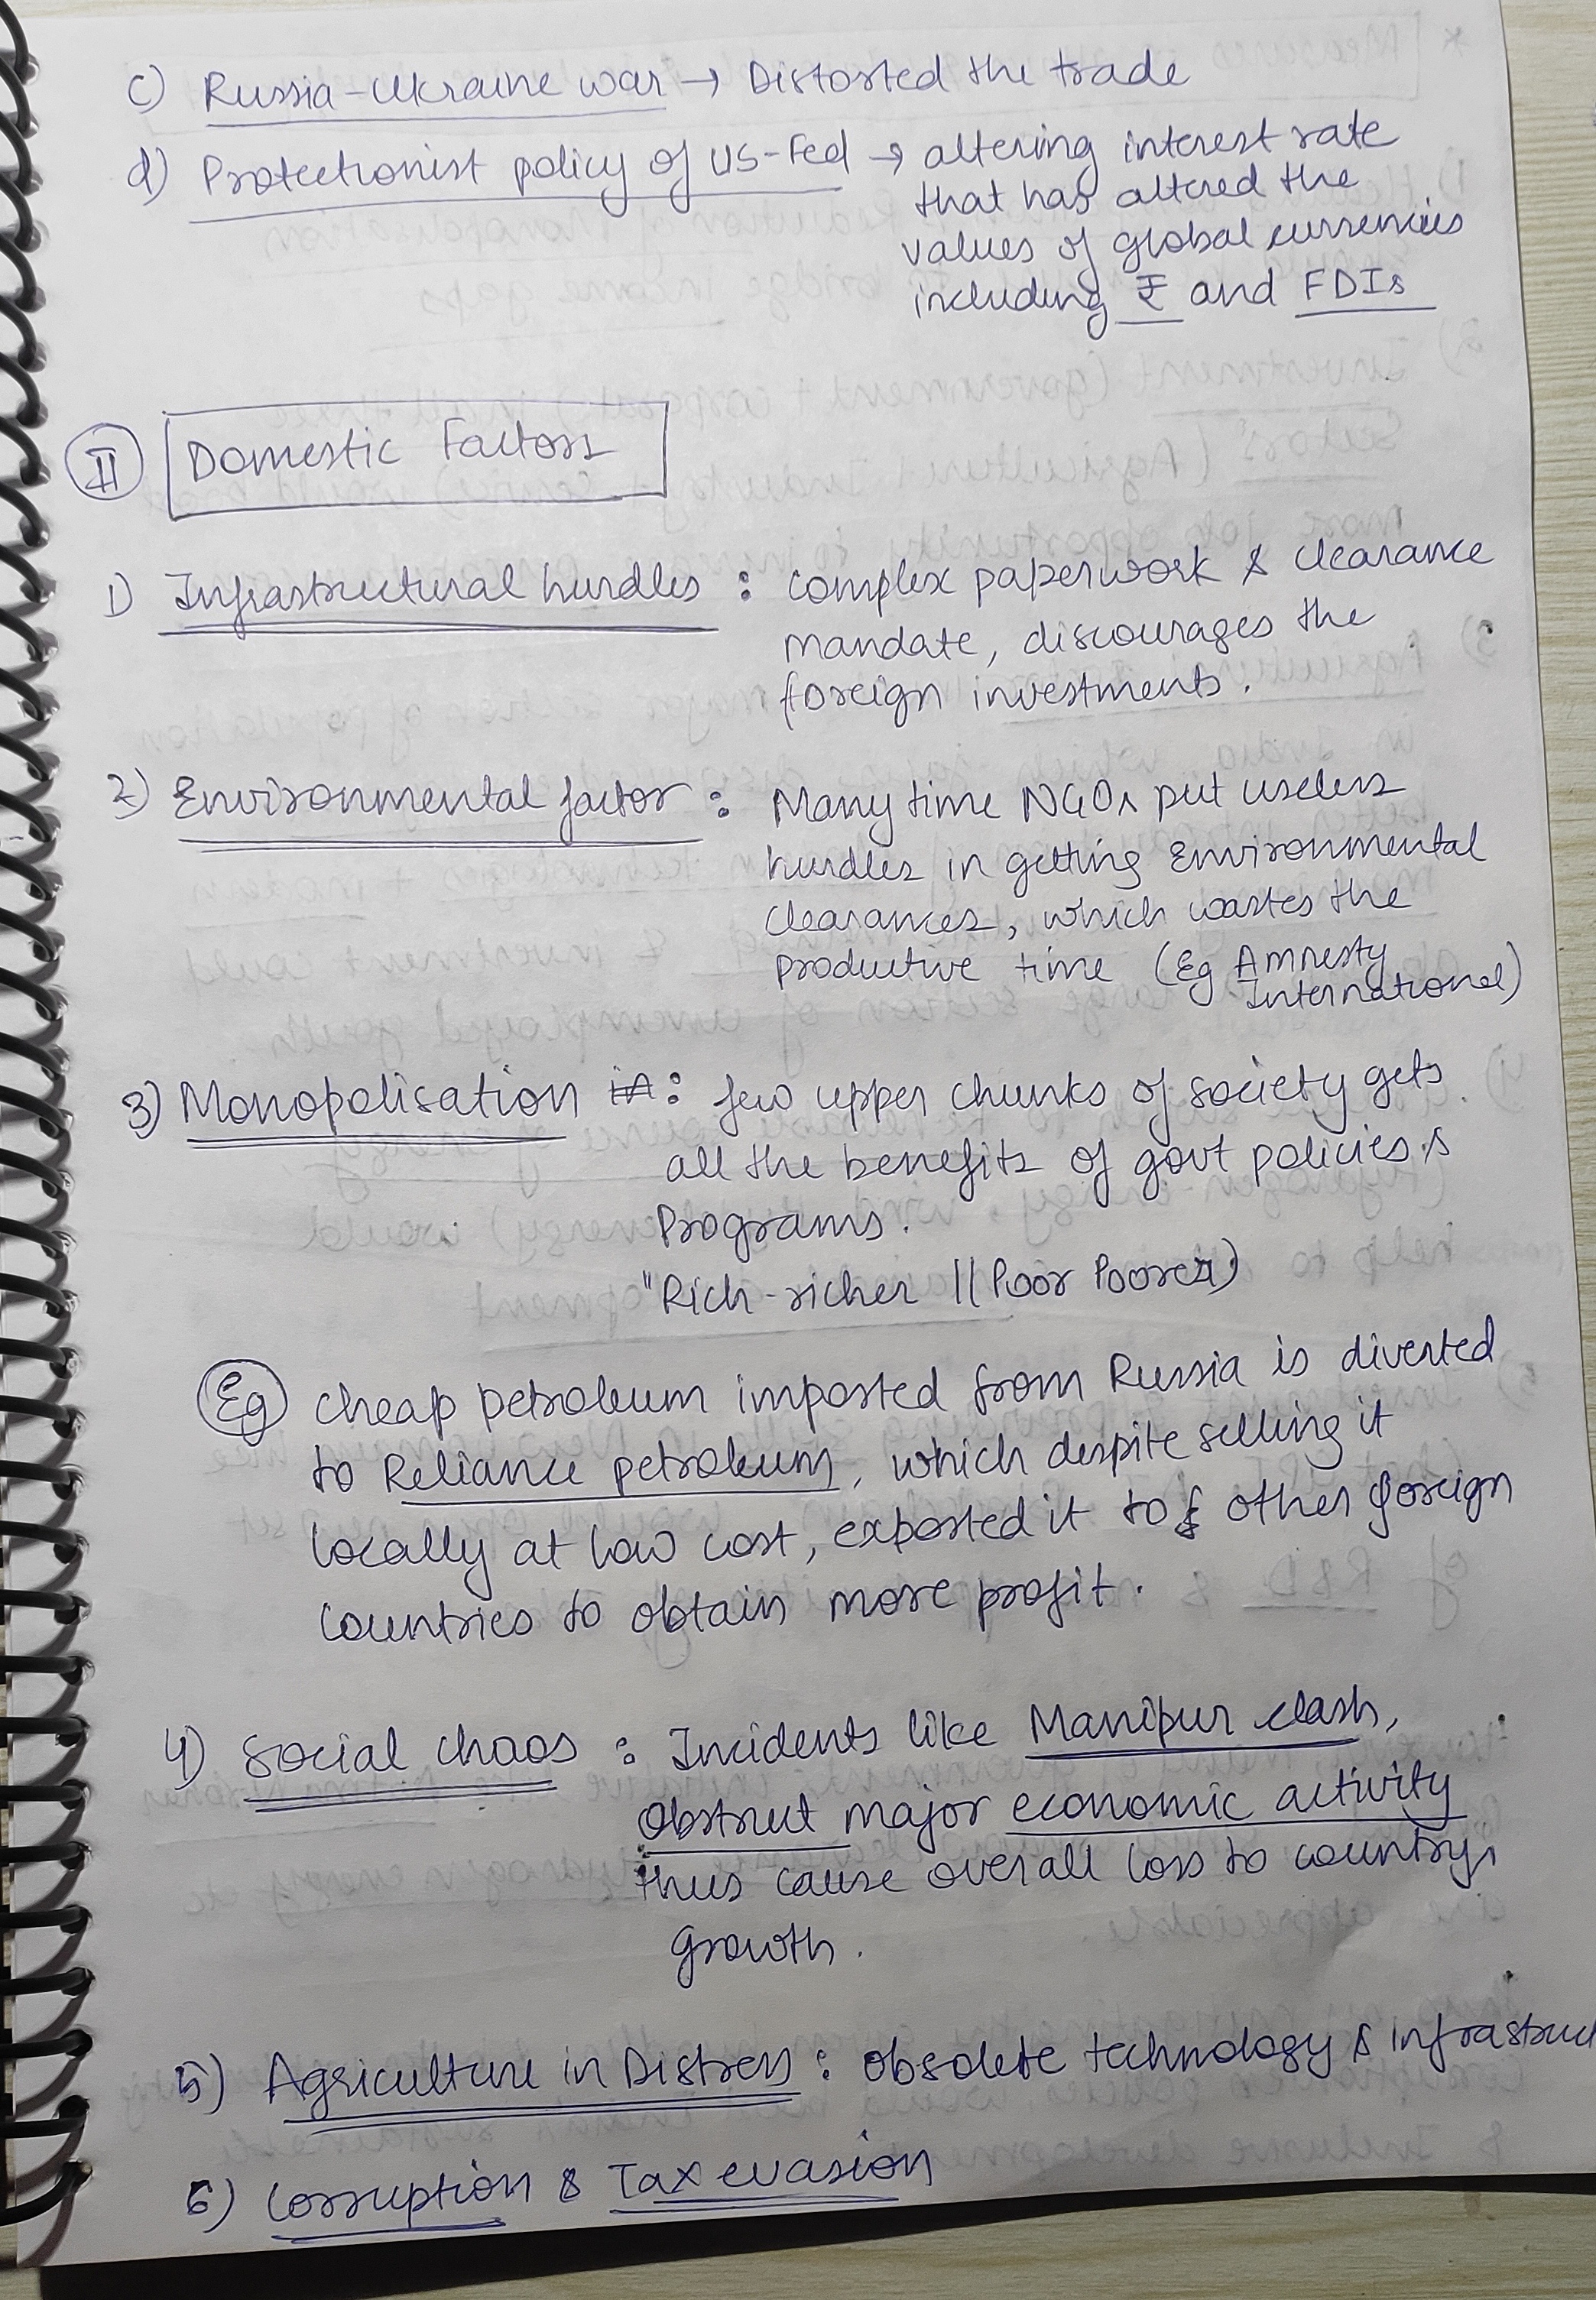 c) Russia-Ukraine war → Distorted the trade
d) Protectionist policy of US-Fed → altering interest rate
that has altered the
values of global currencies
including ₹ and FDIs
II Domestic Factors
1) Infrastructural hurdles : complex paperwork & clearance
mandate, discourages the
foreign investments.
2) Environmental factor : Many time NGOs put useless
hurdles in getting Environmental
clearances, which wastes the
productive time (Eg Amnesty
International)
3) Monopolisation : few upper chunks of society gets
all the benefits of govt policies &
Programs.
"Rich-richer || Poor Poorer)
Eg cheap petroleum imported from Russia is diverted
to Reliance petroleum, which despite selling it
locally at low cost, exported it to other foreign
countries to obtain more profit.
4) Social chaos : Incidents like Manipur clash,
obstruct major economic activity
thus cause overall loss to country,
growth.
5) Agriculture in Distress : obsolete technology & infrastruct
6) Corruption & Tax evasion